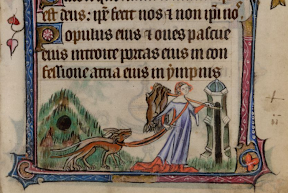 est deus: ipse fecit nos & non ipsi nos
Populus eius & oues pascue
eius introite portas eius in con
fessione atria eius in ympnis
ii